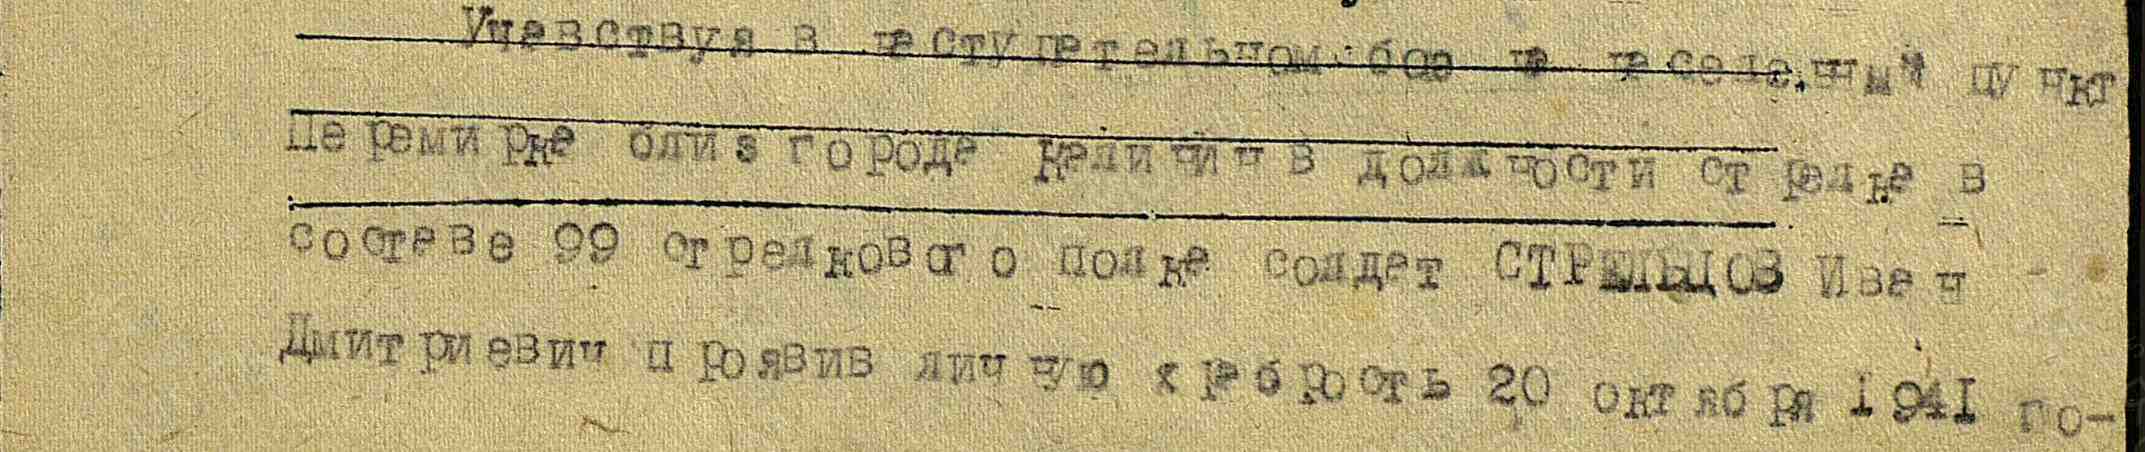 Учавствуя в наступательном бое на населенный пункт
Перемирка близ города Калинин в должности стрелка в
составе 99 стрелкового полка солдат СТРЕЛЬЦОВ Иван
Дмитриевич проявив личную храбрость 20 октября 1941 по-